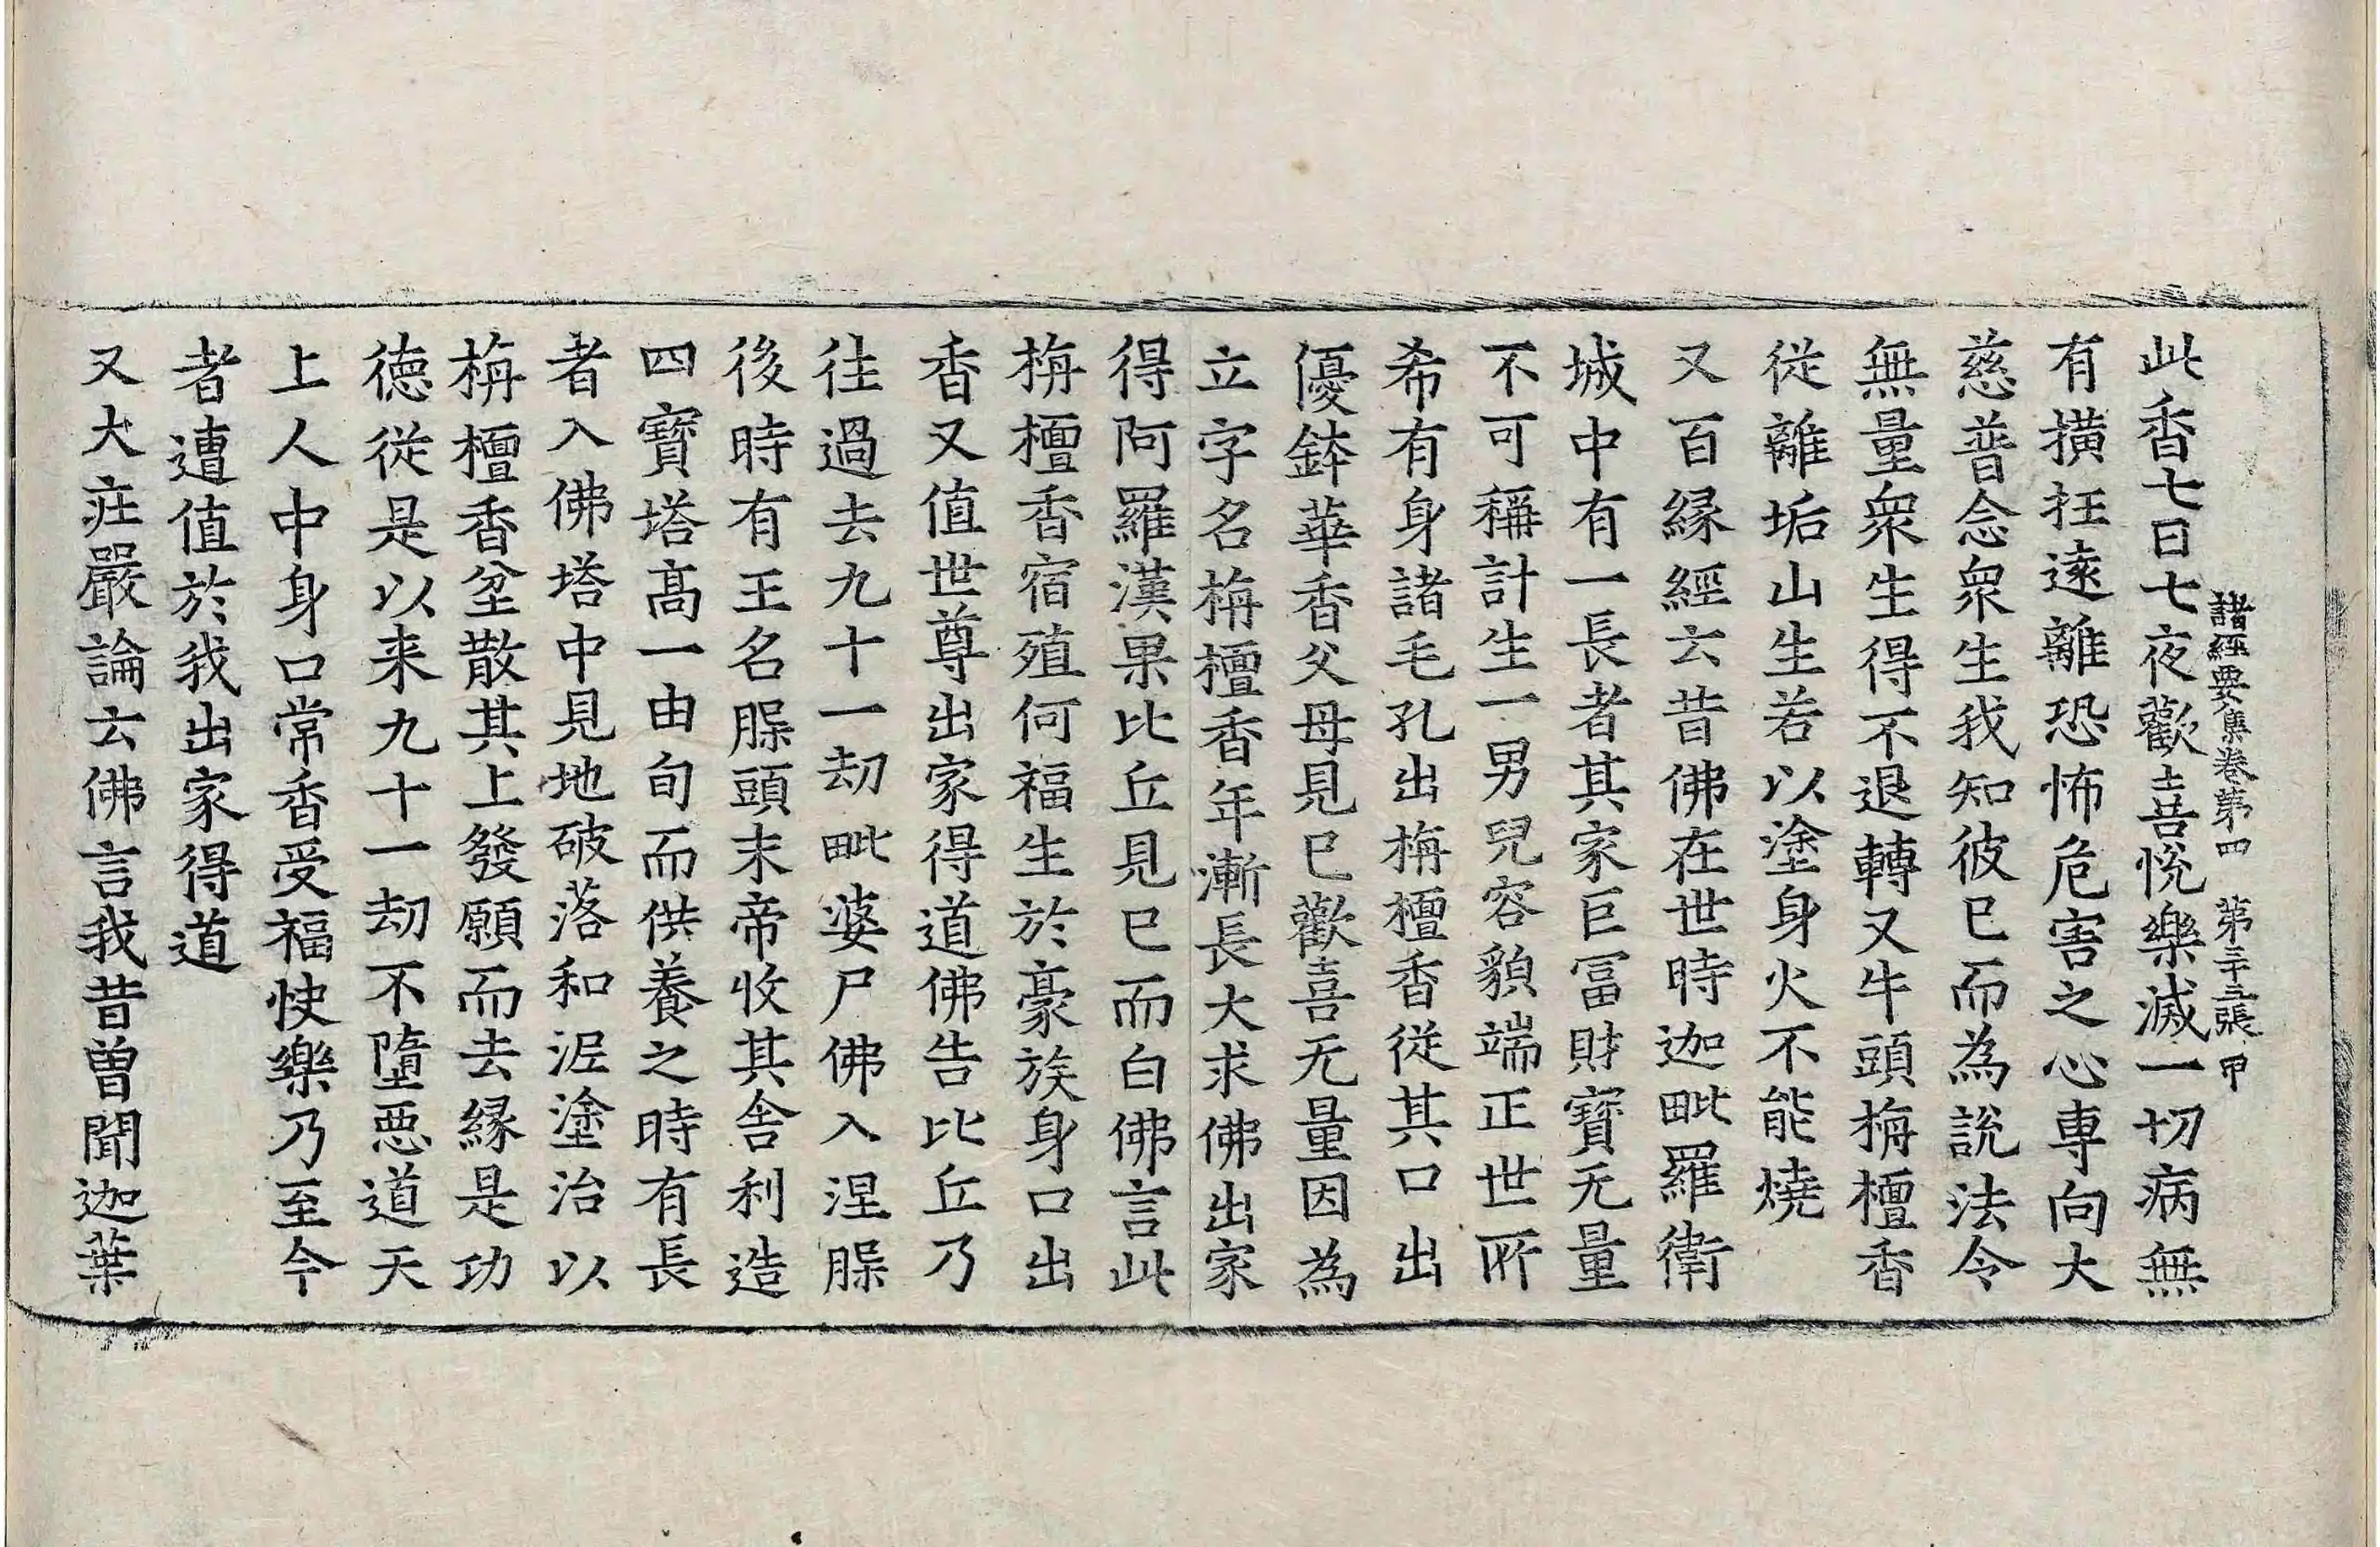 諸經要集卷第四　第三十三張　甲
此香七日七夜歡喜悅樂滅一切病無
有橫抂遠離恐怖危害之心專向大
慈普念衆生我知彼巳而為說法令
無量衆生得不退轉又牛頭栴檀香
從離垢山生若以塗身火不能燒
又百緣經云昔佛在世時迦毗羅衛
城中有一長者其家巨冨財寶无量
不可稱計生一男兒容貌端正世所
希有身諸毛孔出栴檀香從其口出
優鉢華香父母見巳歡喜无量因為
立字名栴檀香年漸長大求佛出家
得阿羅漢果比丘見巳而白佛言此
栴檀香宿殖何福生於豪族身口出
香又值世尊出家得道佛告比丘乃
往過去九十一劫毗婆尸佛入涅槃
後時有王名槃頭末帝收其舍利造
四寶塔高一由旬而供養之時有長
者入佛塔中見地破落和泥塗治以
栴檀香坌散其上發願而去緣是功
德從是以来九十一劫不墮惡道天
上人中身口常香受福快樂乃至今
者遭值於我出家得道
又大庄嚴論云佛言我昔曾聞迦葉